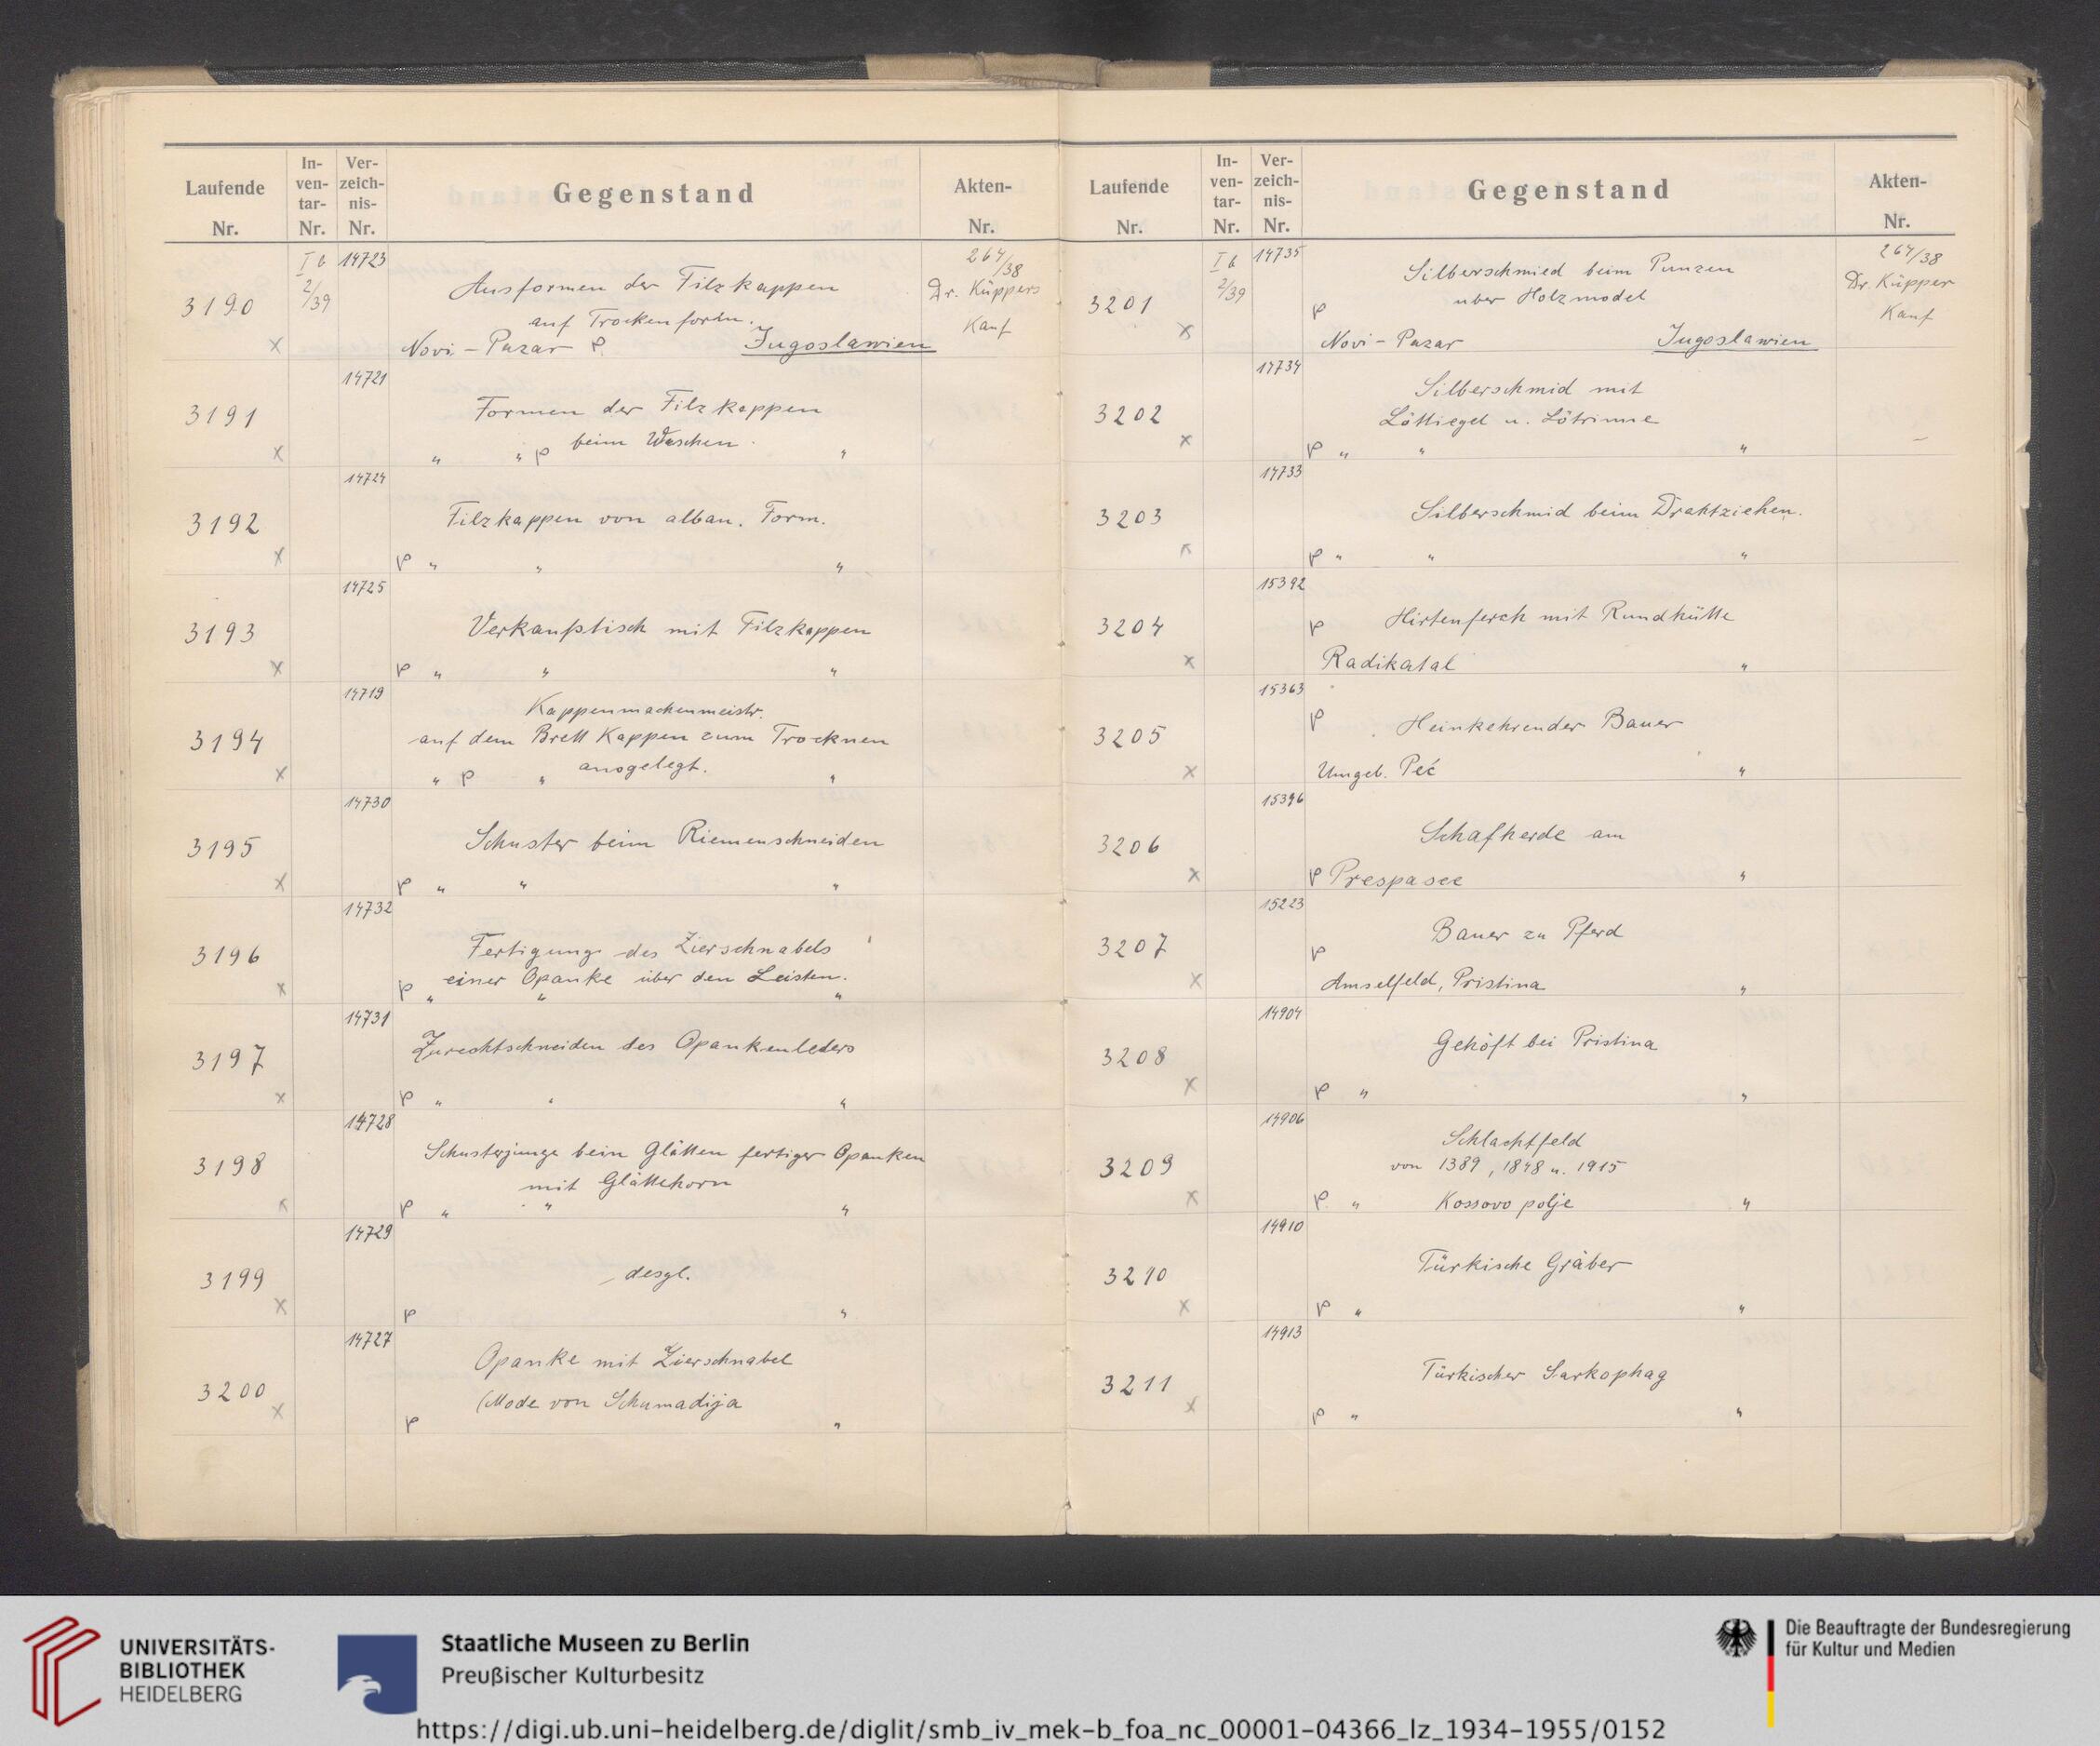 Laufende Nr.
In-ven-tar-Nr.
Ver-zeich-nis-Nr.
Gegenstand
Akten-Nr.
3190 x
I b 2/39
14723
Ausformen der Filzkappen
auf Trockenform.
Novi-Pazar P. Jugoslawien
264/38
Dr. Küppers
Kauf
3191 x
14721
Formen der Filzkappen
beim Waschen.
" " P "
3192 x
14724
Filzkappen von alban. Form.
P " " "
3193 x
14725
Verkaufstisch mit Filzkappen
P " " "
3194 x
14719
Kappenmachenmeistr.
auf dem Brett Kappen zum Trocknen
ausgelegt.
" P " "
3195 x
14730
Schuster beim Riemenschneiden
P " " "
3196 x
14732
Fertigung des Zierschnabels
einer Opanke über den Leisten.
P " " "
3197 x
14731
Zurechtschneiden des Opankenleders
P " " "
3198 x
14728
Schusterjunge beim Glätten fertiger Opanken
mit Glättehorn
P " " "
3199 x
14729
desgl.
P "
3200 x
14727
Opanke mit Zierschnabel
(Mode von Schumadija
P "
Laufende Nr.
In-ven-tar-Nr.
Ver-zeich-nis-Nr.
Gegenstand
Akten-Nr.
3201 x
I b 2/39
14735
Silberschmied beim Punzen
über Holzmodel
P
Novi-Pazar Jugoslawien
264/38
Dr. Küpper
Kauf
3202 x
14734
Silberschmid mit
Löttiegel u. Lötrinne
P " " "
3203 x
14733
Silberschmid beim Drahtziehen.
P " " "
3204 x
15392
P Hirtenferch mit Rundhütte
Radikatal "
3205 x
15363
P Heinkehrender Bauer
Umgeb. Peć "
3206 x
15396
Schafherde am
P Prespasee "
3207 x
15223
Bauer zu Pferd
P
Amselfeld, Pristina "
3208 x
14904
Gehöft bei Pristina
P " "
3209 x
14906
Schlachtfeld
von 1389, 1848 u. 1915
P. " Kossovo polje "
3210 x
14910
Türkische Gräber
P " "
3211 x
14913
Türkischer Sarkophag
P " "
UNIVERSITÄTS-
BIBLIOTHEK
HEIDELBERG
Staatliche Museen zu Berlin
Preußischer Kulturbesitz
Die Beauftragte der Bundesregierung
für Kultur und Medien
https://digi.ub.uni-heidelberg.de/diglit/smb_iv_mek-b_foa_nc_00001-04366_lz_1934-1955/0152